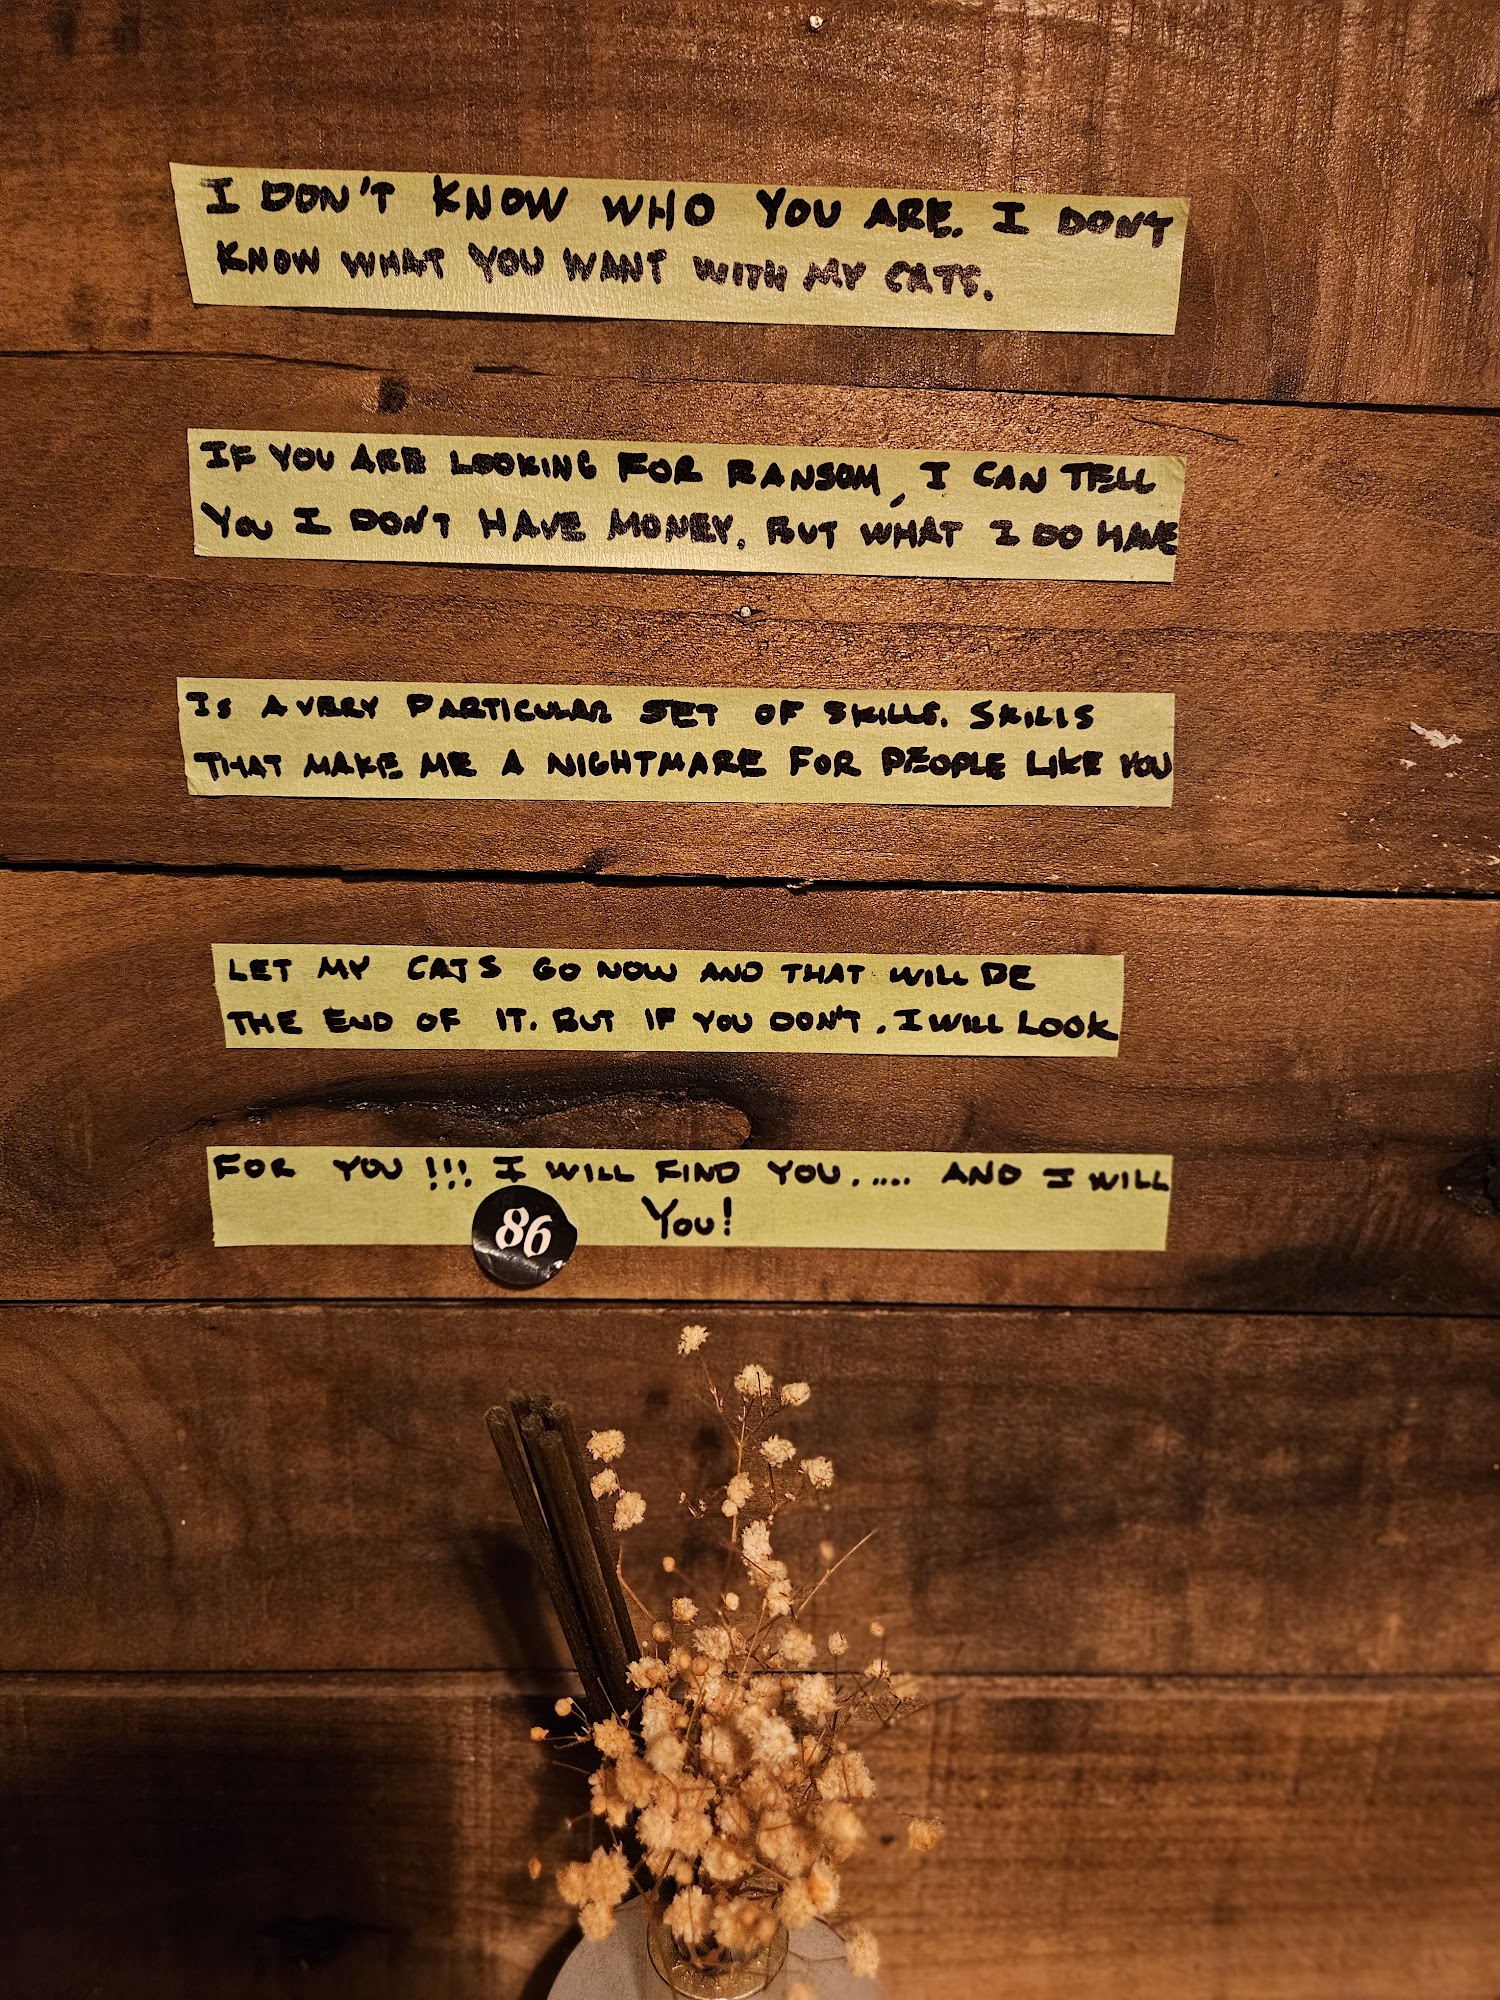 I DON'T KNOW WHO YOU ARE. I DON'T
KNOW WHAT YOU WANT WITH MY CATS.
IF YOU ARE LOOKING FOR RANSOM, I CAN TELL
YOU I DON'T HAVE MONEY. BUT WHAT I DO HAVE
IS A VERY PARTICULAR SET OF SKILLS. SKILLS
THAT MAKE ME A NIGHTMARE FOR PEOPLE LIKE YOU
LET MY CATS GO NOW AND THAT WILL BE
THE END OF IT. BUT IF YOU DON'T, I WILL LOOK
FOR YOU!!! I WILL FIND YOU..... AND I WILL
86 YOU!